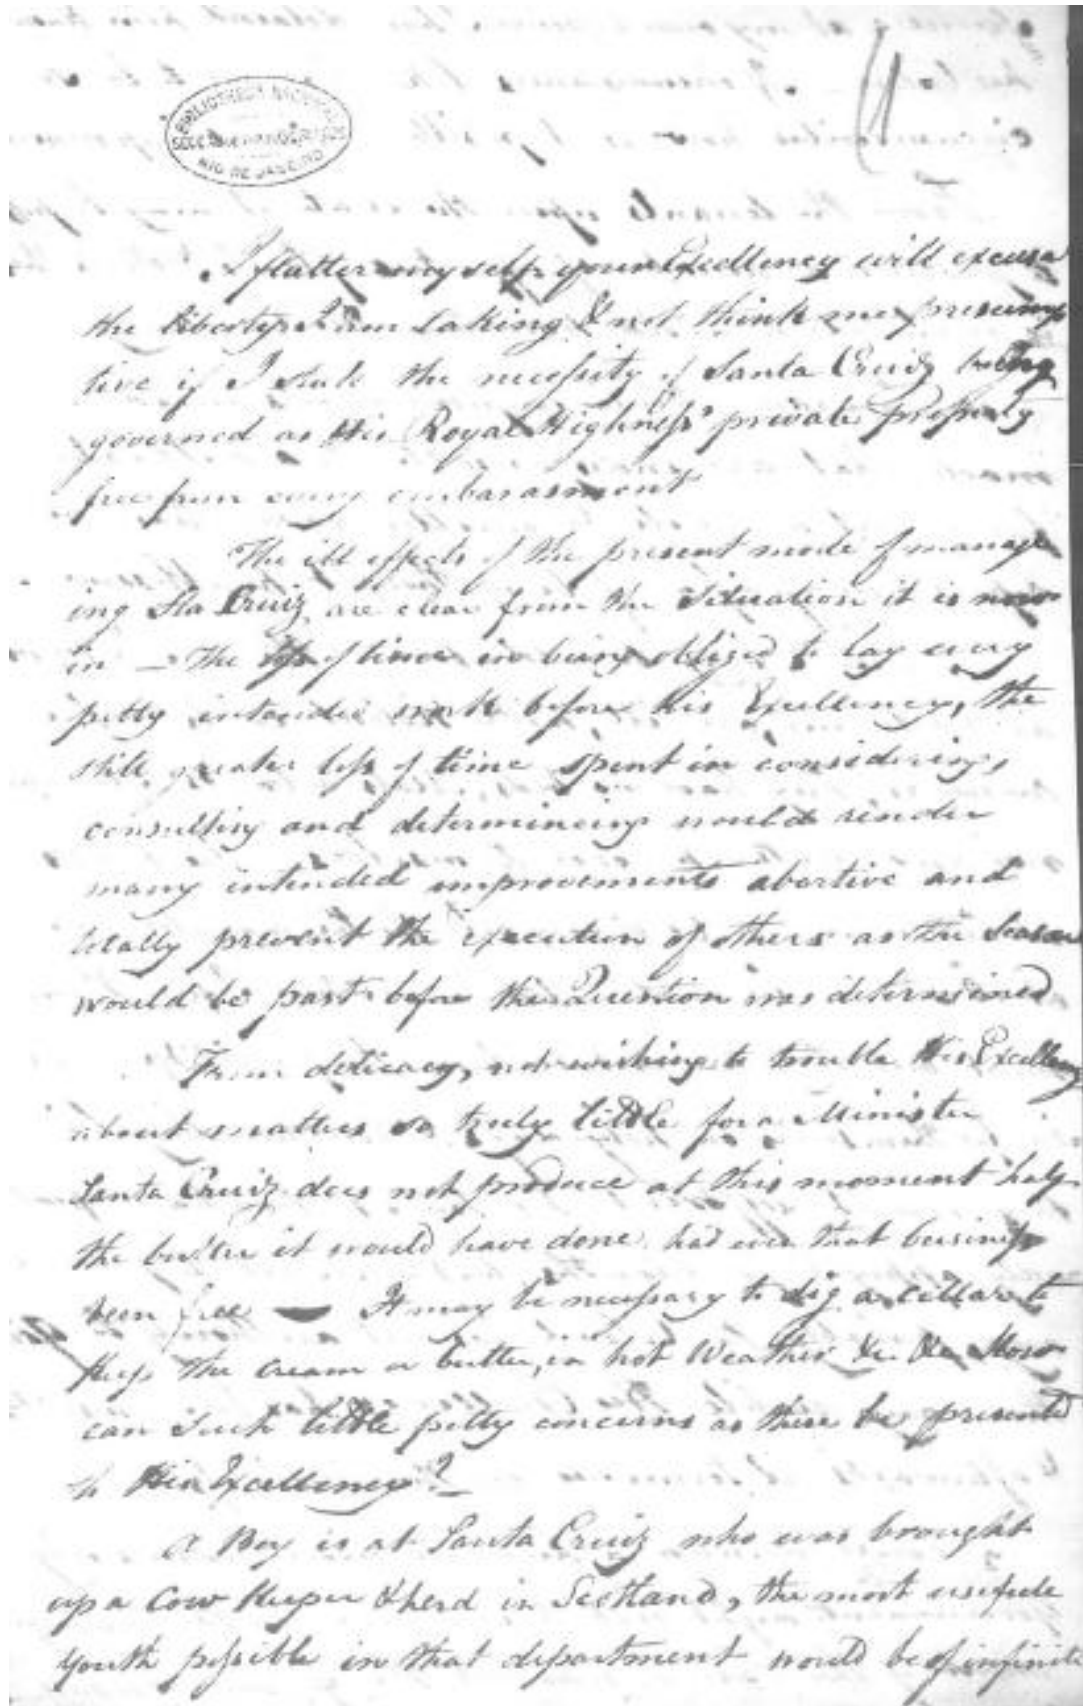 BIBLIOTHECA NACIONAL
RIO DE JANEIRO
I flatter myself your Excellency will excuse
the liberty I am taking & not think me presump
tive if I state the necessity of Santa Cruiz being
governed as His Royal Highness' private property
free from every embarasment
The ill effects of the present mode of manage
ing Sta Cruiz are clear from the Situation it is now
in — The loss of time in being obliged to lay every
petty intended work before his Excellency, the
still greater loss of time spent in considering,
consulting and determining would render
many intended improvements abortive and
totally prevent the execution of others as the Season
would be past before the Question was determined
From delicacy, not wishing to trouble His Excellency
about matters so truly little for a Minister
Santa Cruiz does not produce at this moment half
the butter it would have done had even that business
been free — It may be necessary to dig a cellar to
keep the cream or butter, in hot Weather &c &c How
can such little petty concerns as these be presented
to His Excellency? _
A Boy is at Santa Cruiz who was brought
up a Cow Keeper & herd in Scotland, the most usefule
youth possible in that department would be of infinite